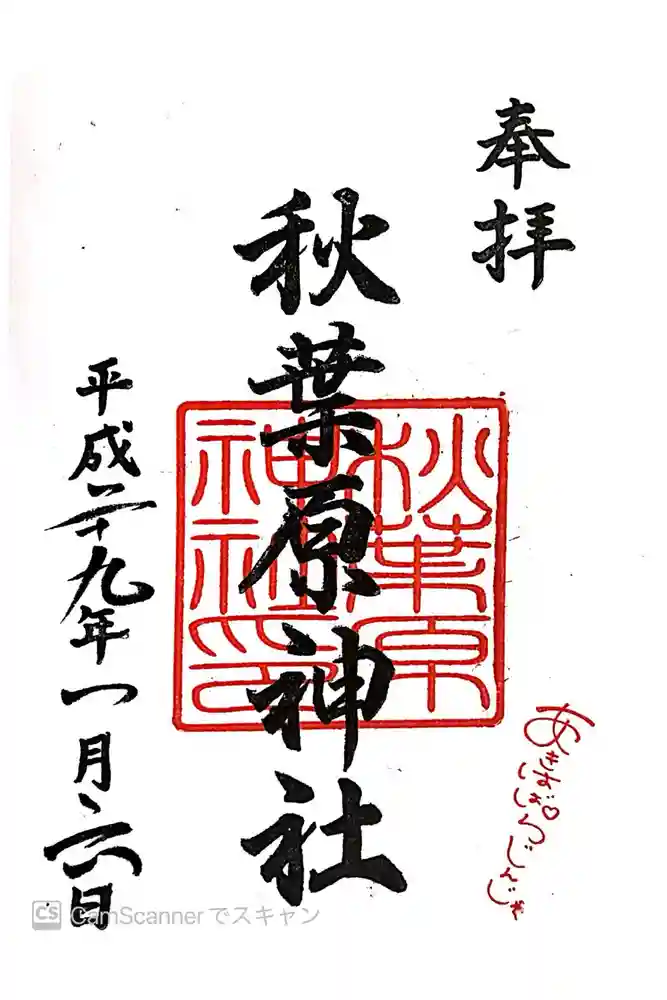 奉拝
秋葉原神社
秋葉原
神社印
平成二十九年一月六日
あきばはら♡じんじゃ
CS CamScannerでスキャン